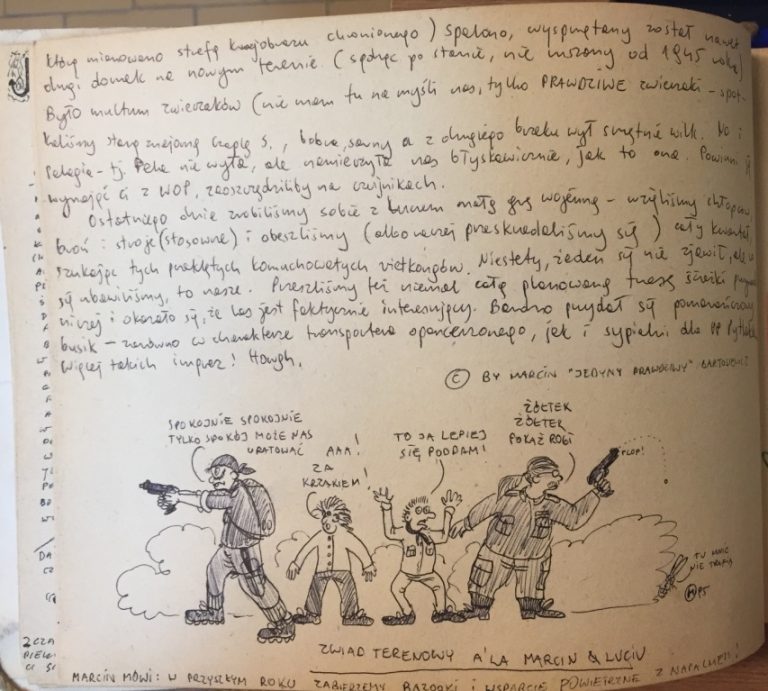 którą mianowano strefą krajobrazu chronionego) spalono, wysprzątany został nawet
drugi domek na nowym terenie. (sądząc po stanie, nie ruszany od 1945 roku)
Było multum zwierzaków (nie mam tu na myśli nas, tylko PRAWDZIWE zwierzaki - spot-
kaliśmy starą znajomą czaplę S., bobra, sarny a z drugiego brzegu wył smętnie wilk. No i
Pelagia - tj. Pela nie wyła, ale namierzyła nas błyskawicznie, jak to ona. Powinni ją
wynająć ci z WOP, zaoszczędziliby na czujnikach.
Ostatniego dnia zrobiliśmy sobie z małą grę wojenną - wzięliśmy chłopców
broń i stroje (stosowne) i obeszliśmy (albo raczej przeskradaliśmy się) cały kwartał
szukając tych przeklętych komuchowatych vietkongów. Niestety, żaden się nie zjawił, ale co
się ubawiliśmy, to nasze. Przeszliśmy też niemal całą planowaną trasę ścieżki
i okazało się, że las jest faktycznie interesujący. Bardzo przydał się pomarańczowy
busik - zarówno w charakterze transportera opancerzonego, jak i sypialni dla PP
Więcej takich imprez! Howgh.
© BY MARCIN "JEDYNY PRAWDZIWY"
SPOKOJNIE SPOKOJNIE
TYLKO SPOKÓJ MOŻE NAS
URATOWAĆ
AAA!
ZA
KRZAKIEM!
TO JA LEPIEJ
SIĘ PODDAM!
ŻÓŁTEK
ŻÓŁTEK
POKAŻ ROGI
PLOP!
TU MNIE
NIE TRAFIĄ
95
ZWIAD TERENOWY A'LA MARCIN & LUCIU
MARCIN MÓWI: W PRZYSZŁYM ROKU ZABIERZEMY BAZOOKI I WSPARCIE POWIETRZNE Z NAPALMEM!